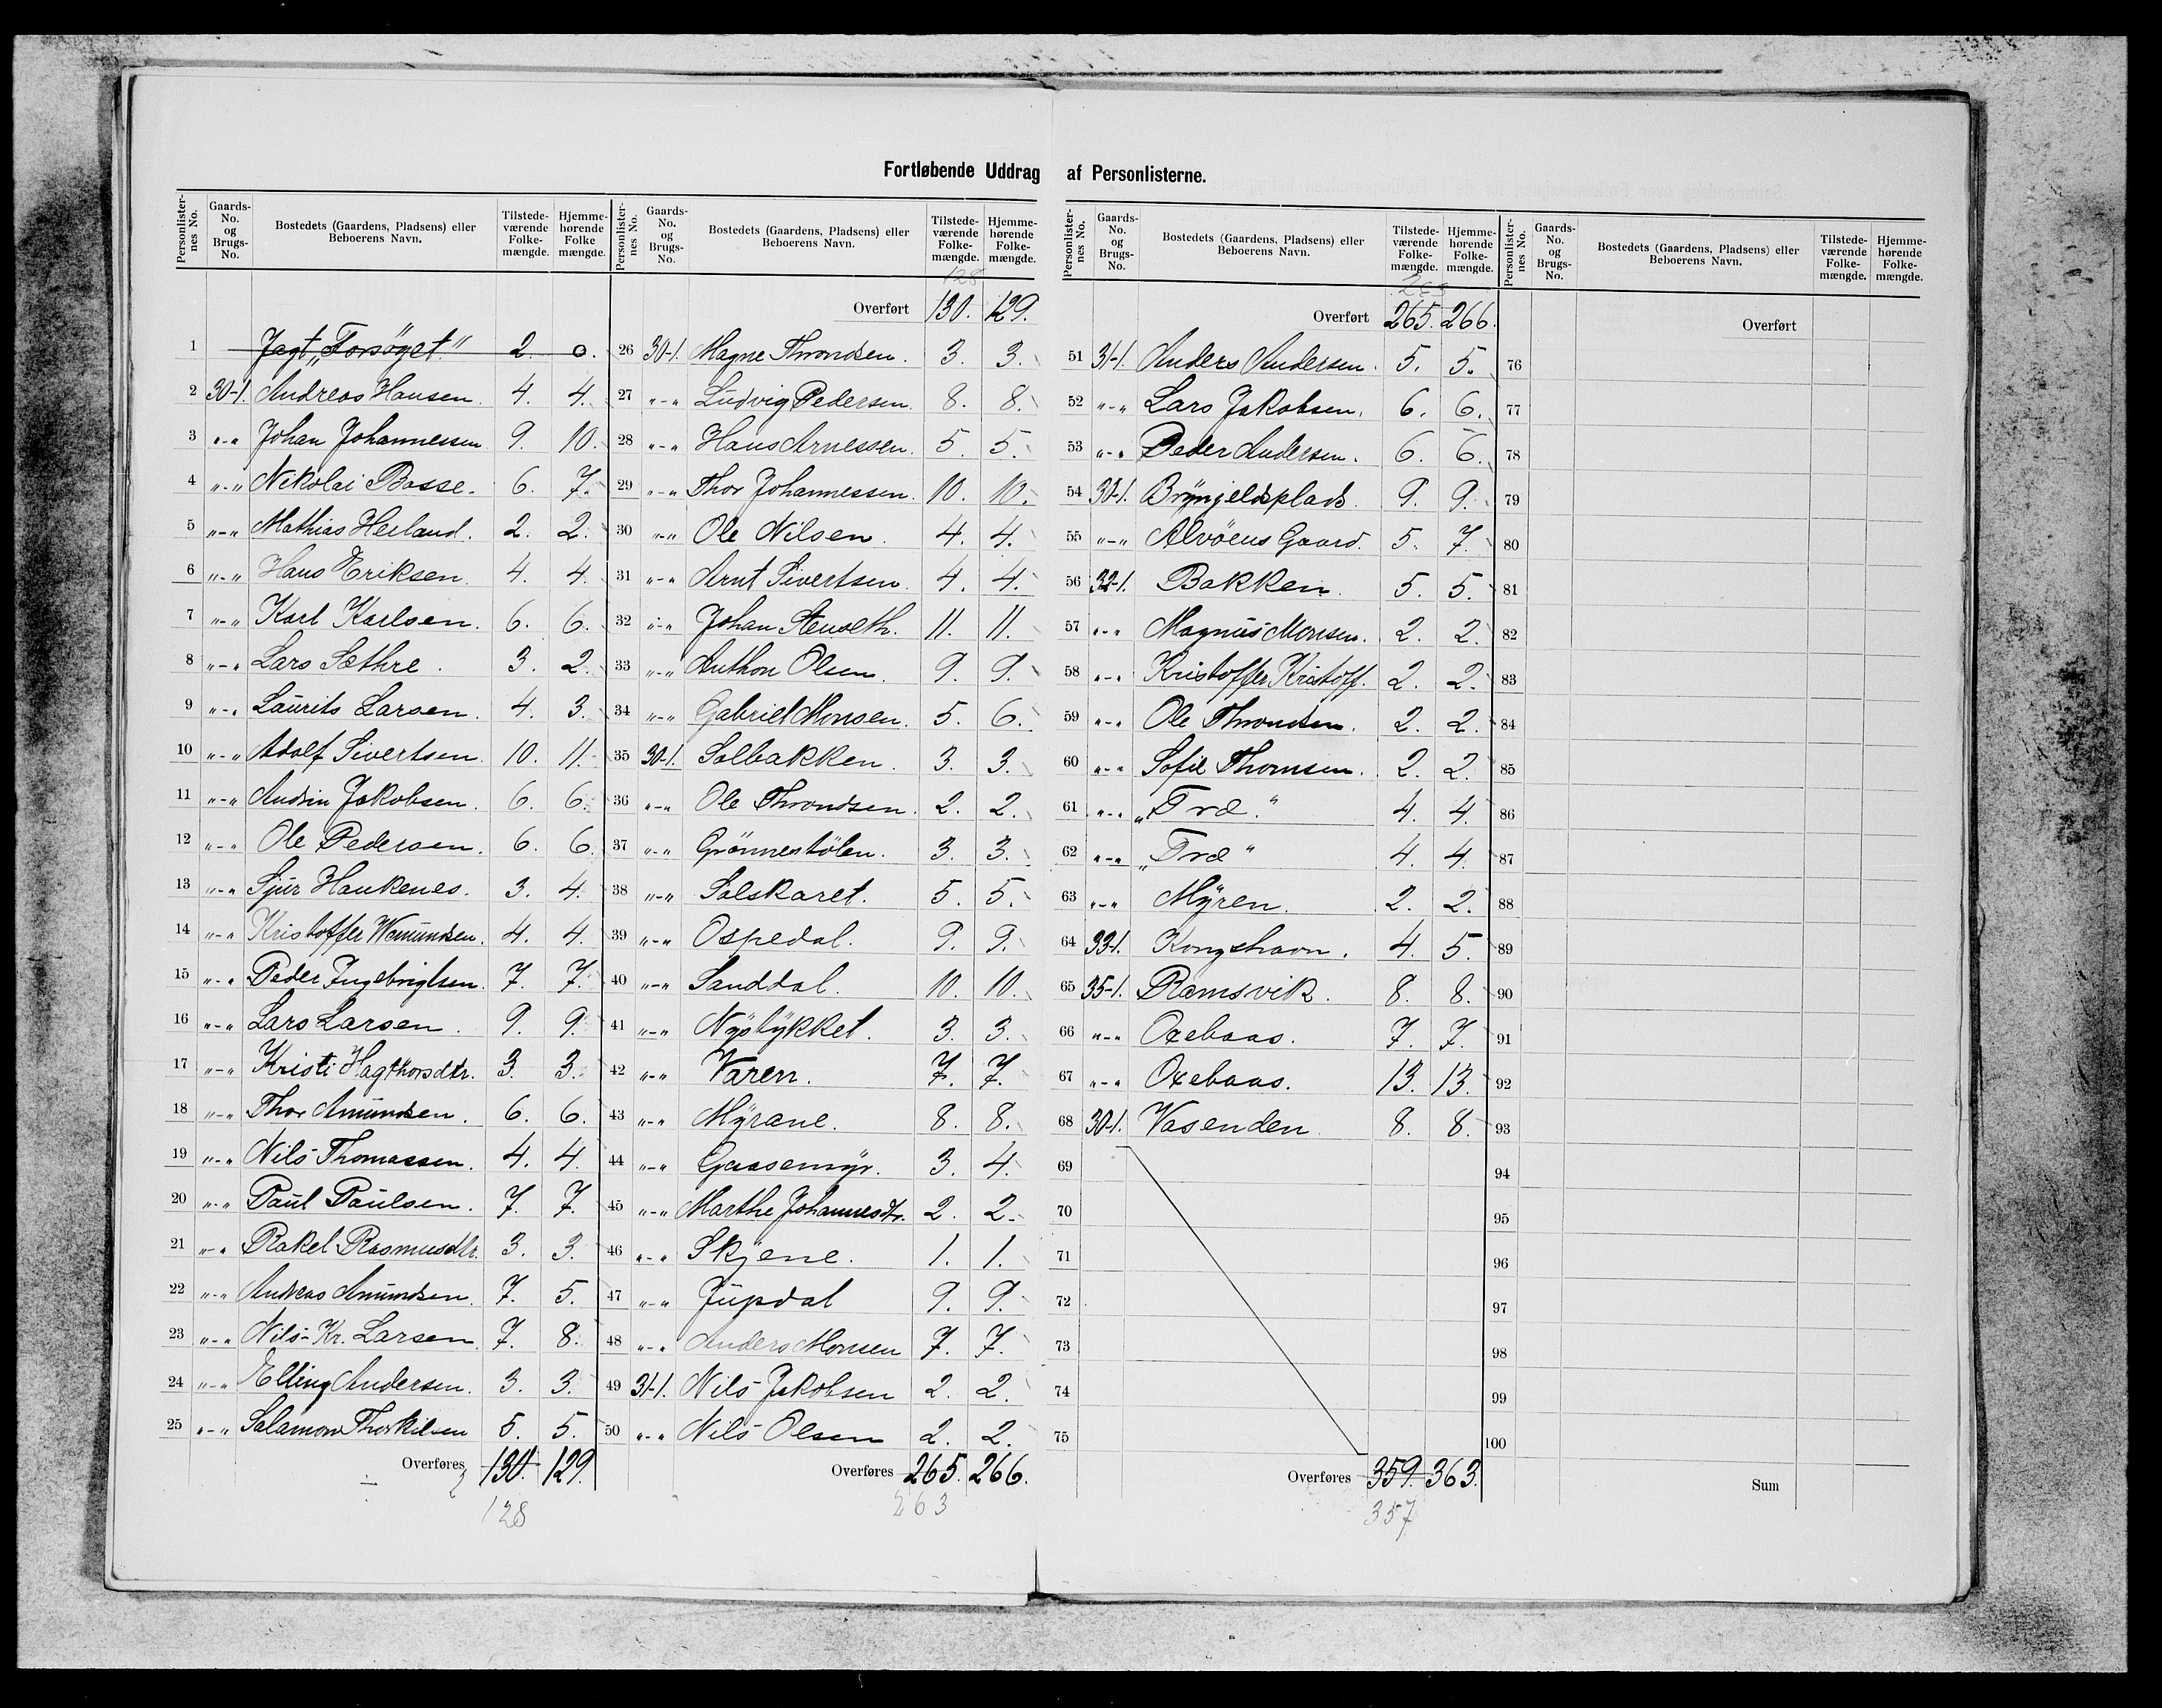 Fortløbende Uddrag af Personlisterne.
Personlisternes No. Gaards-No. og Brugs-No. Bostedets (Gaardens, Pladsens) eller Beboerens Navn. Tilstedeværende Folkemængde. Hjemmehørende Folkemængde.
1 Jagt „Forsöget" 2. 0.
2 30-1. Andreas Hansen. 4. 4.
3 „-„ Johan Johannessen 9. 10.
4 „-„ Nikolai Basse. 6. 7.
5 „-„ Mathias Heiland. 2. 2.
6 „-„ Hans Eriksen. 4. 4.
7 „-„ Karl Karlsen. 6. 6.
8 „-„ Lars Sæthre. 3. 2.
9 „-„ Laurits Larsen. 4. 3.
10 „-„ Adolf Sivertsen. 10. 11.
11 „-„ Andrin Jakobsen. 6. 6.
12 „-„ Ole Pedersen. 6. 6.
13 „-„ Sjur Haukenes. 3. 4.
14 „-„ Kristoffer Wemundsen. 4. 4.
15 „-„ Peder Ingebrigtsen. 7. 7.
16 „-„ Lars Larsen. 9. 9.
17 „-„ Kristi Hagthorsdtr. 3. 3.
18 „-„ Thor Amundsen. 6. 6.
19 „-„ Nils Thomassen. 4. 4.
20 „-„ Paul Paulsen. 7. 7.
21 „-„ Rakel Rasmusdtr. 3. 3.
22 „-„ Andreas Amundsen. 7. 5.
23 „-„ Nils Kr. Larsen. 7. 8.
24 „-„ Elling Andersen. 3. 3.
25 „-„ Salamon Thorkilsen 5. 5.
Overføres 130. 129.
128
Personlisternes No. Gaards-No. og Brugs-No. Bostedets (Gaardens, Pladsens) eller Beboerens Navn. Tilstedeværende Folkemængde. Hjemmehørende Folkemængde.
128
Overført 130. 129.
26 30-1. Magne Throndsen. 3. 3.
27 „-„ Ludvig Pedersen. 8. 8.
28 „-„ Hans Arnessen. 5. 5.
29 „-„ Thor Johannessen. 10. 10.
30 „-„ Ole Nilsen. 4. 4.
31 „-„ Arnt Sivertsen. 4. 4.
32 „-„ Johan Stenseth. 11. 11.
33 „-„ Anthon Olsen. 9. 9.
34 „-„ Gabriel Monsen. 5. 6.
35 30-1. Solbakken. 3. 3.
36 „-„ Ole Throndsen. 2. 2.
37 „-„ Grönnestölen. 3. 3.
38 „-„ Solskaret. 5. 5.
39 „-„ Ospedal. 9. 9.
40 „-„ Sanddal. 10. 10.
41 „-„ Nystykket. 3. 3.
42 „-„ Varen. 7. 7.
43 „-„ Myrane. 8. 8.
44 „-„ Gaasemyr. 3. 4.
45 „-„ Marthe Johannesdtr. 2. 2.
46 „-„ Skjene. 1. 1.
47 „-„ Jupdal 9. 9.
48 „-„ Anders Monsen 7. 7.
49 31-1. Nils Jakobsen 2. 2.
50 „-„ Nils Olsen 2. 2.
Overføres 265. 266.
263
Personlisternes No. Gaards-No. og Brugs-No. Bostedets (Gaardens, Pladsens) eller Beboerens Navn. Tilstedeværende Folkemængde. Hjemmehørende Folkemængde.
263
Overført 265. 266.
51 31-1. Anders Andersen. 5. 5.
52 „-„ Lars Jakobsen. 6. 6.
53 „-„ Peder Andersen. 6. 6.
54 30-1. Brynjeldsplads. 9. 9.
55 „-„ Alvöens Gaard. 5. 7.
56 32-1. Bakken. 5. 5.
57 „-„ Magnus Monsen. 2. 2.
58 „-„ Kristoffer Kristoff. 2. 2.
59 „-„ Ole Throndsen. 2. 2.
60 „-„ Sofie Thomsen. 2. 2.
61 „-„ „Træ." 4. 4.
62 „-„ „Træ" 4. 4.
63 „-„ Myren. 2. 2.
64 33-1. Kongshavn. 4. 5.
65 35-1. Ramsvik. 8. 8.
66 „-„ Oxebaas. 7. 7.
67 „-„ Oxebaas. 13. 13.
68 30-1. Vasenden 8. 8.
69
70
71
72
73
74
75
Overføres 359. 363.
357
Personlisternes No. Gaards-No. og Brugs-No. Bostedets (Gaardens, Pladsens) eller Beboerens Navn. Tilstedeværende Folkemængde. Hjemmehørende Folkemængde.
Overført
76
77
78
79
80
81
82
83
84
85
86
87
88
89
90
91
92
93
94
95
96
97
98
99
100
Sum